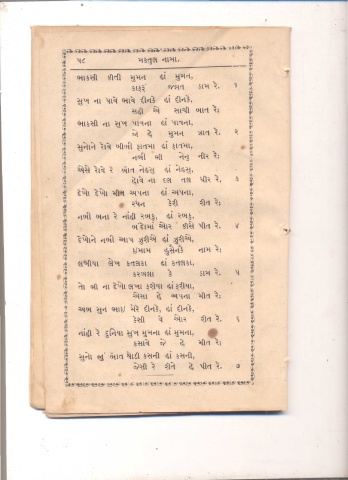 ૫૮ મકતુલ નામા.
ભાકસી કીતી મુમન હાં મુમન,
કાકરૂં જન્નત કામ રે. ૧
સુખ ના પાવે ભાવે દીનકે હાં દીનકે,
સહી એ સાચી બાત રે;
ભાકસી ના સુખ પાવના હાં પાવના,
જે હે મુમન જાત રે. ૨
સુનોને રોવે બીબી ફાતમા હાં ફાતમા,
નબી બી નેનુ નીર રે;
એસે રોવે રે બોત નેહસુ હાં નેહસુ,
હોવે ના દલ તલ ધીર રે. ૩
દેખો દેખો મીત અપના હાં અપના,
રખન કેરી રીત રે;
નબી બના રે નાંહી રબકુ, હાં રબકુ,
બંદોમાં ઓર કીસે પીત રે. ૪
દેખોને નબી આપ ઝુરીએ હાં ઝુરીએ,
ઇમામ હુસેનકે નામ રે;
લખીયા લેખ કતલકા હાં કતલકા,
કરબલા કે કામ રે. ૫
તો બી ના દેખો લખા ફરીયા હાં ફરીયા,
એસા હે અપના મીત રે;
અબ સુન ભાઇ મેરે દીનકે, હાં દીનકે,
કેસી વે ઓર રીત રે. ૬
નાંહી રે દુનિયા સુખ મુમના હાં મુમના,
કસાવે જે હે મીત રે;
સુનો જી બાત થોડી કસની હાં કસની,
જેસી રે રીતે હે પીત રે. ૭